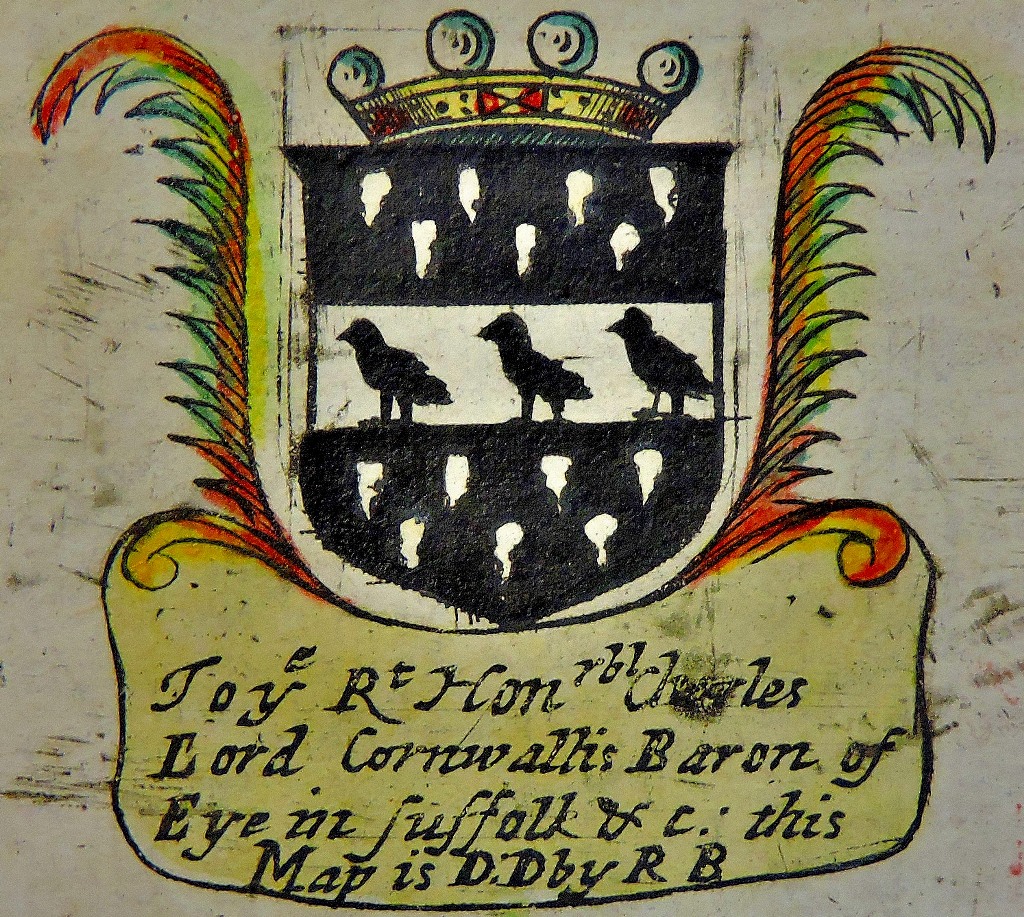 To yᵉ Rᵗ Honʳᵇˡ Charles
Lord Cornwallis Baron of
Eye in ſuffolk & c.: this
Map is D.D by R B